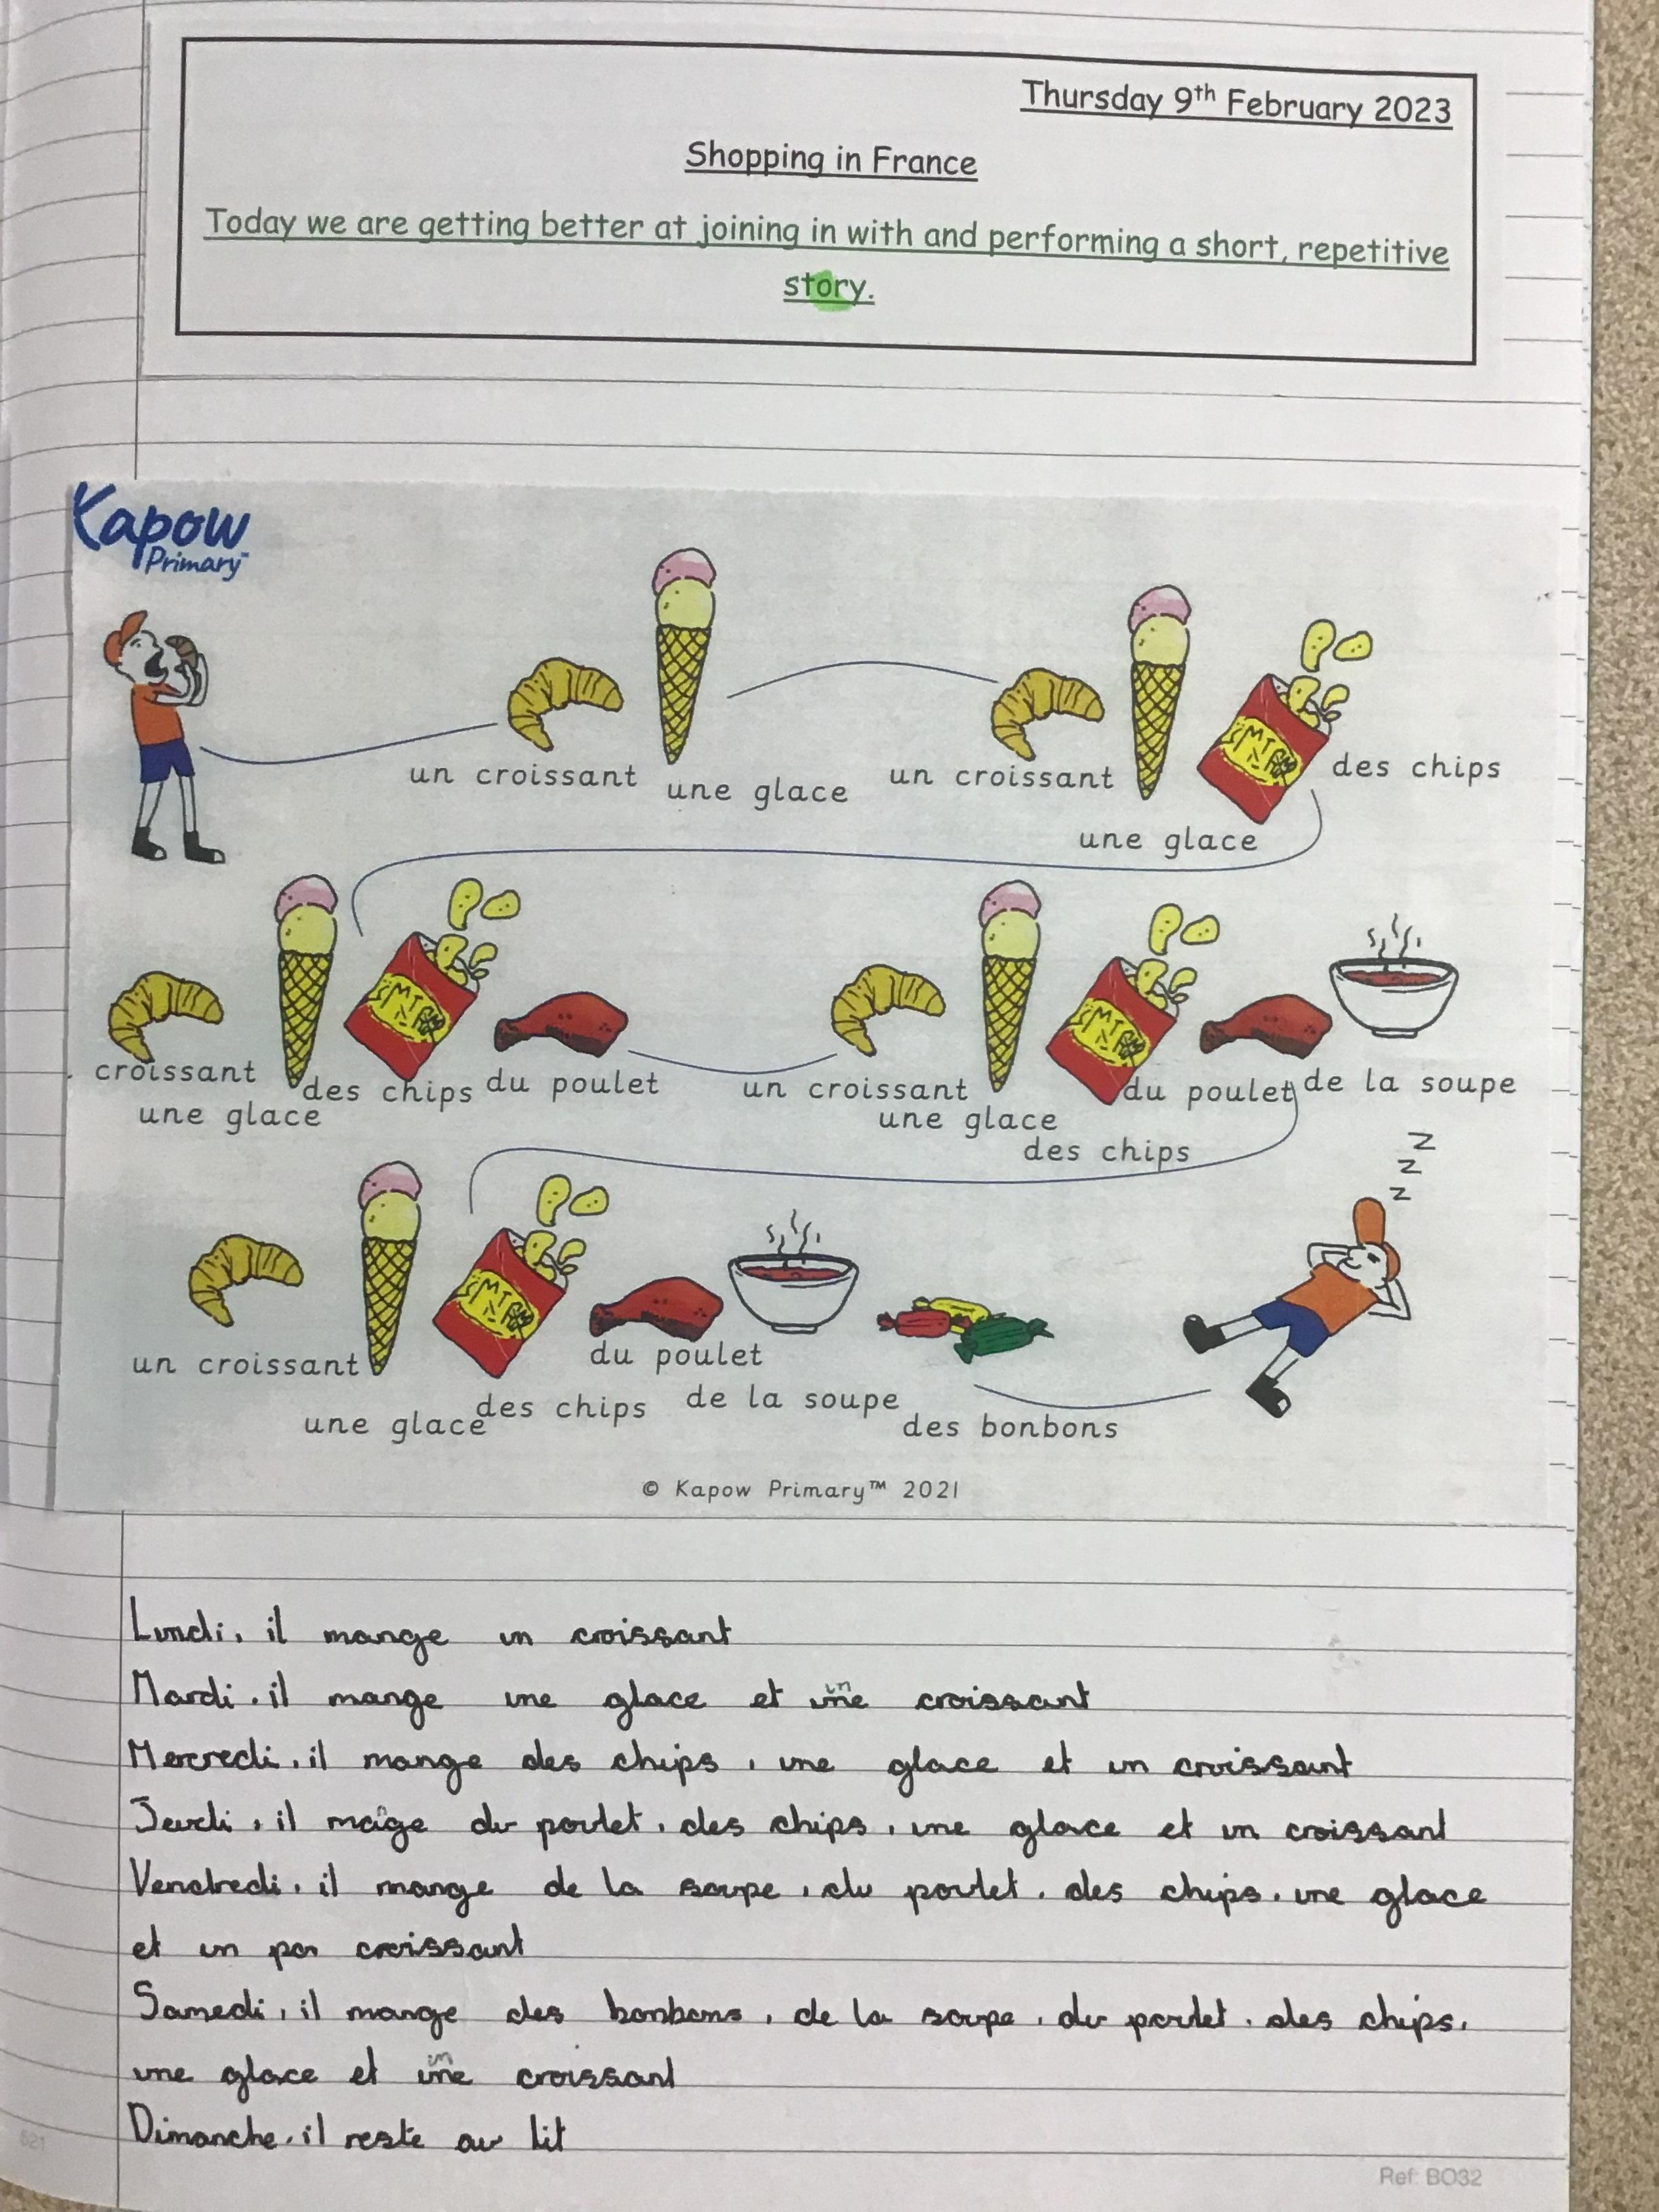 Thursday 9th February 2023
Shopping in France
Today we are getting better at joining in with and performing a short, repetitive
story.
Kapow
Primary
un croissant
une glace
un croissant
une glace
des chips
croissant
une glace
des chips
du poulet
un croissant
une glace
des chips
du poulet
de la soupe
z
z
z
un croissant
une glace
des chips
du poulet
de la soupe
des bonbons
© Kapow Primary™ 2021
Lundi, il mange un croissant
Mardi, il mange une glace et une un croissant
Mercredi, il mange des chips, une glace et un croissant
Jeudi, il mange du poulet, des chips, une glace et un croissant
Vendredi, il mange de la soupe, du poulet, des chips, une glace
et un croissant
Samedi, il mange des bonbons, de la soupe, du poulet, des chips,
une glace et une un croissant
Dimanche, il reste au lit
621
Ref: BO32